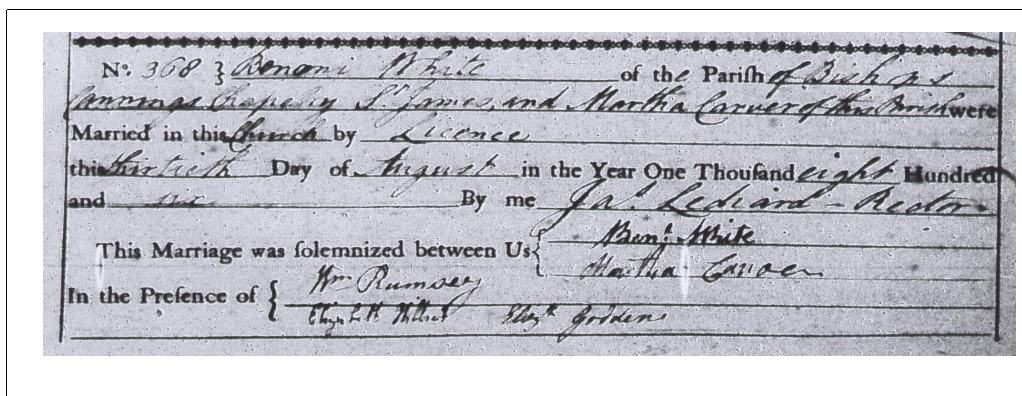 No. 368 } Benoni White of the Parish of Bishops
Cannings Chapelry St. James, and Martha Carver of this Parish were
Married in this Church by Licence
this thirtieth Day of August in the Year One Thousand eight Hundred
and six By me Jas. Lediard - Rector.
This Marriage was solemnized between Us { Benj. White
Martha Carver
In the Presence of { Wm Rumsey
Elizabeth Elizth Goddens